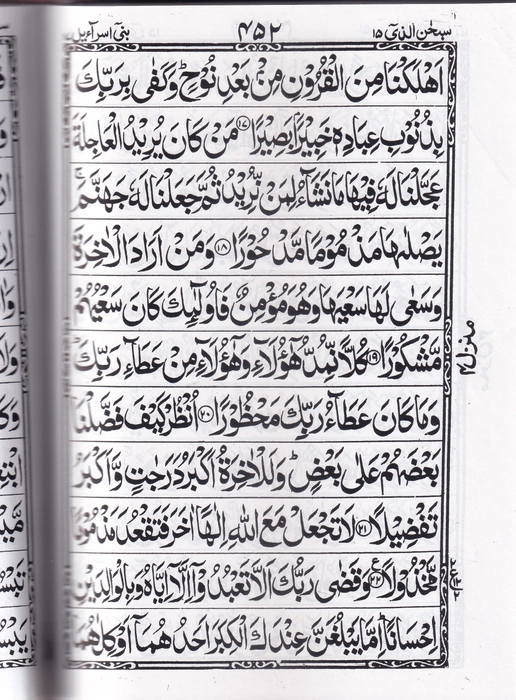 سبحٰن الذیٓ ۱۵
۴۵۲
بنیٓ اسرآءیل
اَهْلَكْنَا مِنَ الْقُرُوْنِ مِنْۢ بَعْدِ نُوْحٍ ؕ وَكَفٰى بِرَبِّكَ
بِذُنُوْبِ عِبَادِهٖ خَبِيْرًۢا بَصِيْرًا ﴿۱۷﴾ مَنْ كَانَ يُرِيْدُ الْعَاجِلَةَ
عَجَّلْنَا لَهٗ فِيْهَا مَا نَشَآءُ لِمَنْ نُّرِيْدُ ثُمَّ جَعَلْنَا لَهٗ جَهَنَّمَ ۚ
يَصْلٰىهَا مَذْمُوْمًا مَّدْحُوْرًا ﴿۱۸﴾ وَمَنْ اَرَادَ الْاٰخِرَةَ
وَسَعٰى لَهَا سَعْيَهَا وَهُوَ مُؤْمِنٌ فَاُولٰٓئِكَ كَانَ سَعْيُهُمْ
مَّشْكُوْرًا ﴿۱۹﴾ كُلًّا نُّمِدُّ هٰٓؤُلَآءِ وَهٰٓؤُلَآءِ مِنْ عَطَآءِ رَبِّكَ ؕ
وَمَا كَانَ عَطَآءُ رَبِّكَ مَحْظُوْرًا ﴿۲۰﴾ اُنْظُرْ كَيْفَ فَضَّلْنَا
بَعْضَهُمْ عَلٰى بَعْضٍ ؕ وَلَلْاٰخِرَةُ اَكْبَرُ دَرَجٰتٍ وَّاَكْبَرُ
تَفْضِيْلًا ﴿۲۱﴾ لَا تَجْعَلْ مَعَ اللّٰهِ اِلٰهًا اٰخَرَ فَتَقْعُدَ مَذْمُوْمًا
مَّخْذُوْلًا ﴿۲۲﴾ ع وَقَضٰى رَبُّكَ اَلَّا تَعْبُدُوْٓا اِلَّآ اِيَّاهُ وَبِالْوَالِدَيْنِ
اِحْسَانًا ؕ اِمَّا يَبْلُغَنَّ عِنْدَكَ الْكِبَرَ اَحَدُهُمَآ اَوْ كِلٰهُمَا
منزل ۴